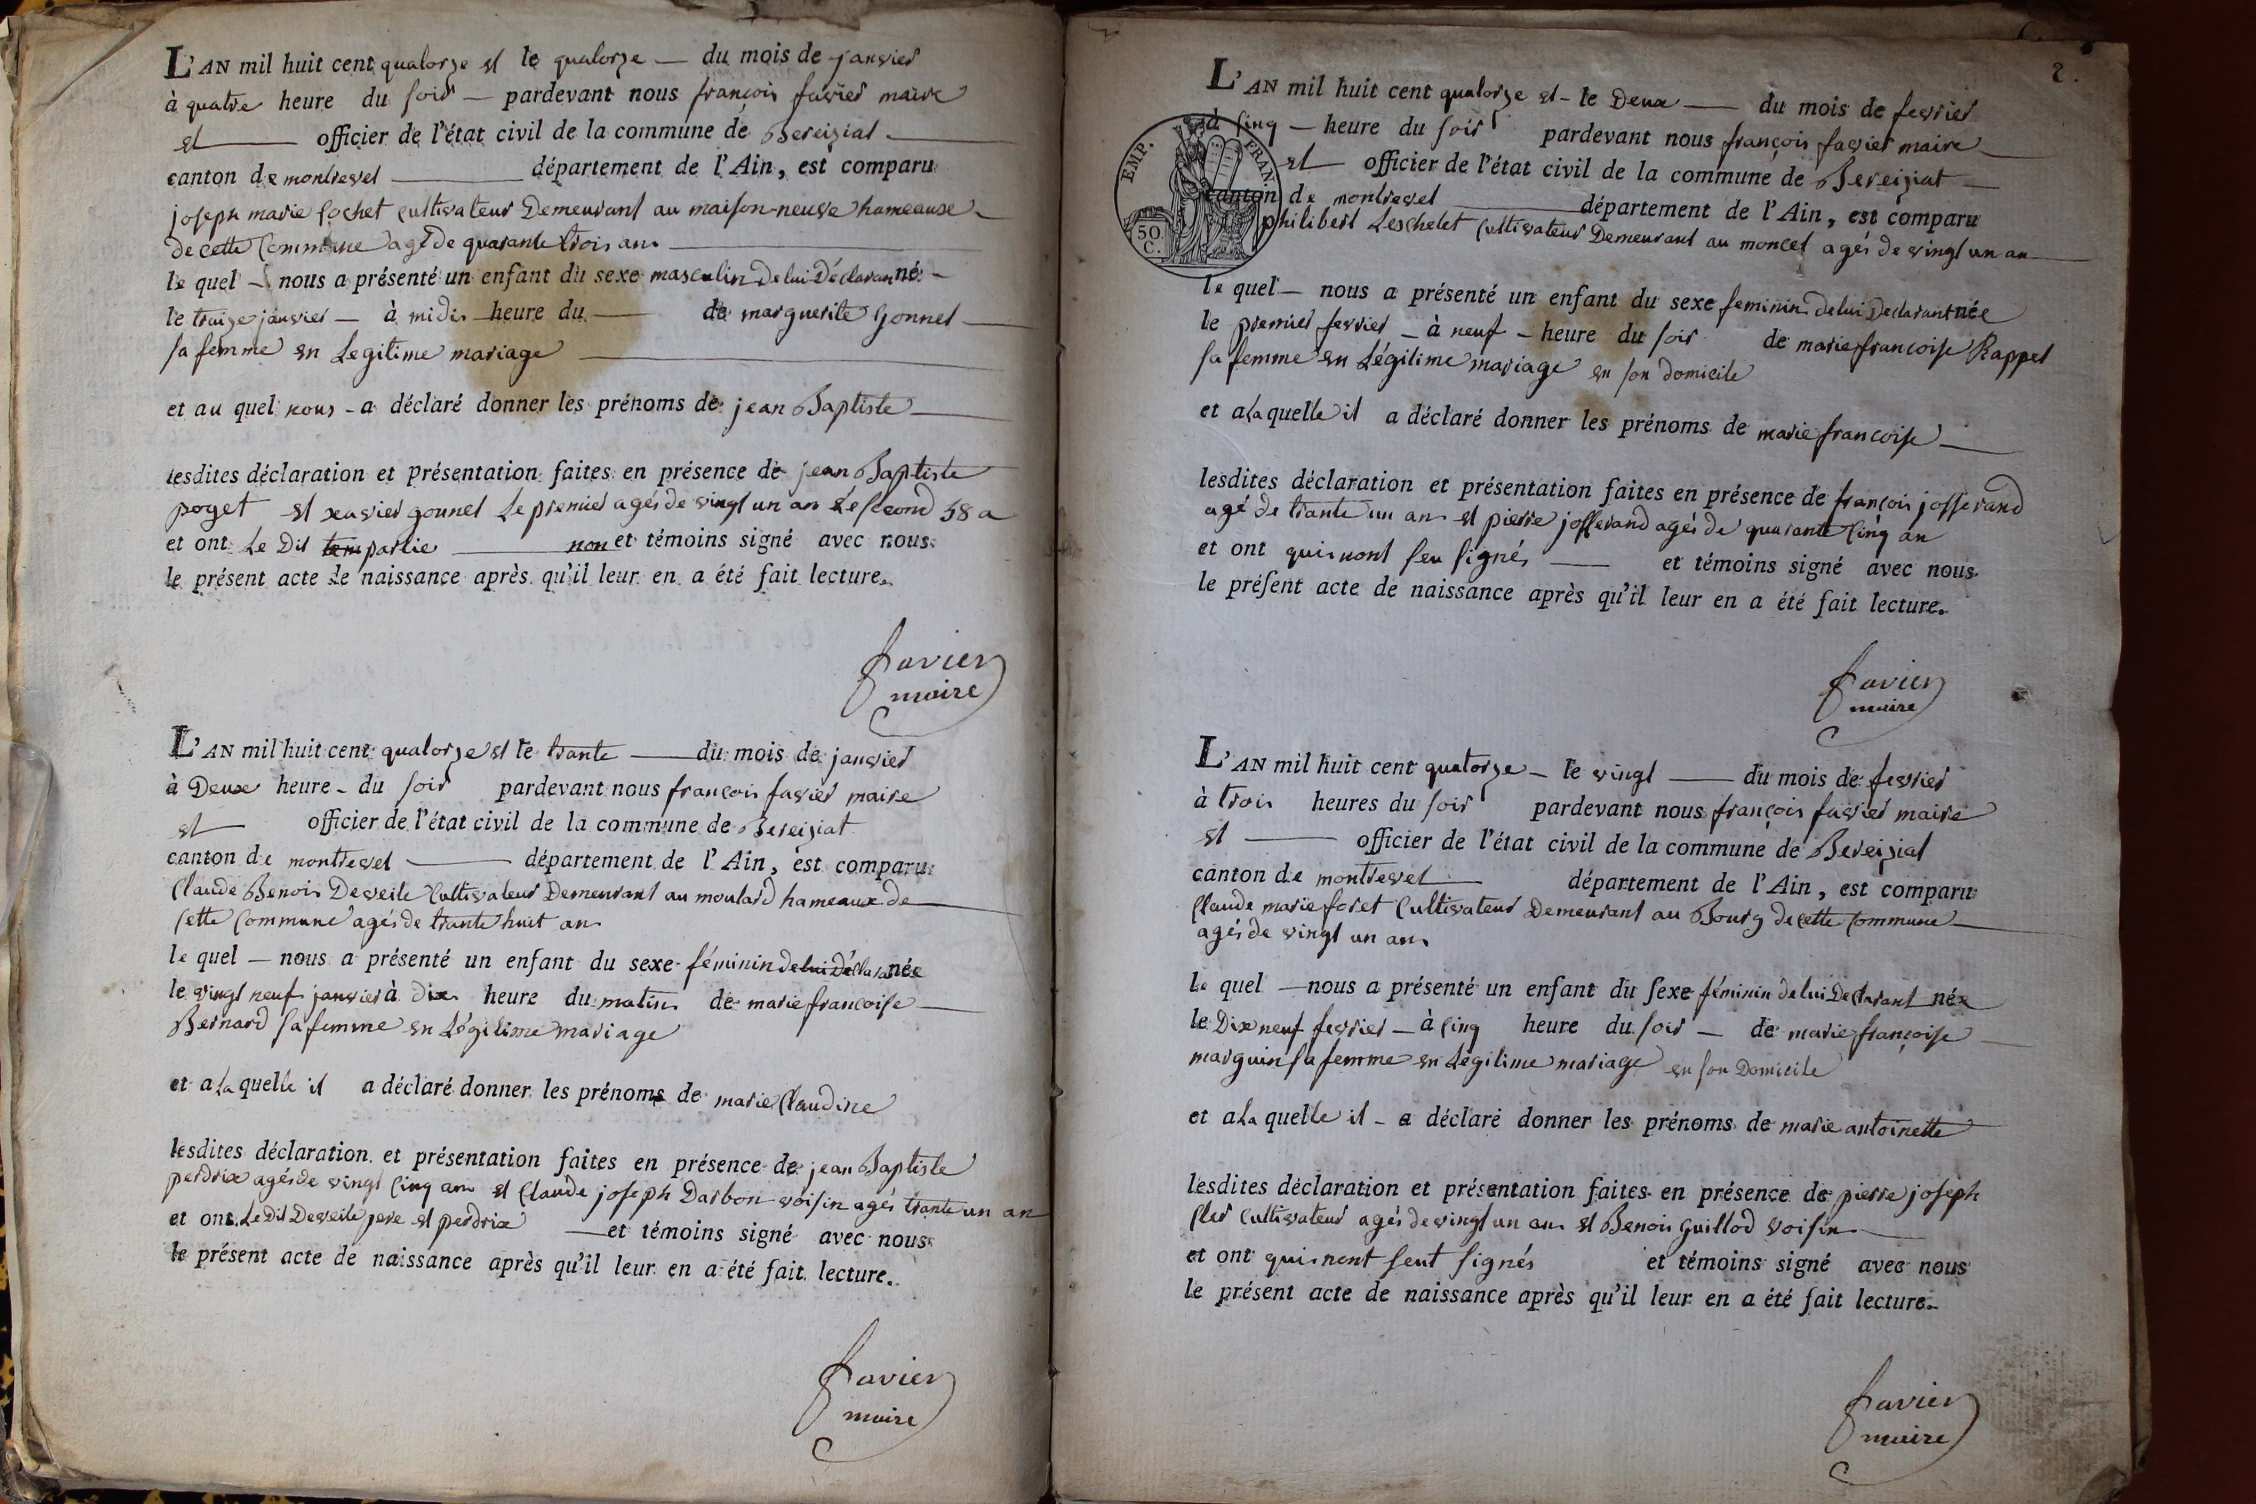 L'AN mil huit cent quatorze et le quatorze du mois de janvier
à quatre heure du soir pardevant nous françois favier maire
et officier de l'état civil de la commune de Bereiziat
canton de montrevel département de l'Ain, est comparu
joseph marie sochet cultivateur Demeurant au maison-neuve hameaux
de cette Commune agé de quarante trois ans
le quel nous a présenté un enfant du sexe masculin de lui Déclaran né
le traize janvier à midi heure du de marguerite Gonnel
sa femme en Legitime mariage
et au quel nous a déclaré donner les prénoms de jean Baptiste
lesdites déclaration et présentation faites en présence de jean Baptiste
poget et xavier gonnel Le premier agés de vingt un an Le second 58 a
et ont Le Dit partie non et témoins signé avec nous
le présent acte de naissance après qu'il leur en a été fait lecture.
favier
maire
L'AN mil huit cent quatorze et le trante du mois de janvier
à Deux heure du soir pardevant nous françois favier maire
et officier de l'état civil de la commune de Bereiziat
canton de montrevel département de l'Ain, est comparu
Claude Benois Deveile Cultivateur Demeurant au moulard hameaux de
sette Commune agés de trante huit ans
le quel nous a présenté un enfant du sexe féminin de lui Déclaran née
le vingt neuf janvier à dix heure du matin de marie francoise
Bernard sa femme en Légitime mariage
et a La quelle il a déclaré donner les prénoms de marie Claudine
lesdites déclaration et présentation faites en présence de jean Baptiste
perdrix agés de vingt cinq ans et Claude joseph Darbon voisin agés trante un an
et ont Le Dit Deveile pere et perdrix et témoins signé avec nous
le présent acte de naissance après qu'il leur en a été fait lecture.
favier
maire
2.
L'AN mil huit cent quatorze et le Deux du mois de fevrier
à sinq heure du soir pardevant nous françois favier maire
et officier de l'état civil de la commune de Bereiziat
canton de montrevel département de l'Ain, est comparu
philibert Leschelet Cultivateur Demeurant au moncel agés de vingt un an
EMP. FRAN.
50 C.
le quel nous a présenté un enfant du sexe feminin de lui Declarant née
le premier fevrier à neuf heure du soir de marie francoise Rappet
sa femme en Légitime mariage en son domicile
et a La quelle il a déclaré donner les prénoms de marie francoise
lesdites déclaration et présentation faites en présence de françois josserand
agé de trante un ans et pierre josserand agés de quarante cinq an
et ont qui nont seu signés et témoins signé avec nous
le présent acte de naissance après qu'il leur en a été fait lecture.
favier
maire
L'AN mil huit cent quatorze le vingt du mois de fevrier
à trois heures du soir pardevant nous françois favier maire
et officier de l'état civil de la commune de Bereiziat
canton de montrevel département de l'Ain, est comparu
Claude marie foret Cultivateur Demeurant au Bourg de cette Commune
agés de vingt un ans
le quel nous a présenté un enfant du sexe féminin de lui Declarant née
le Dix neuf fevrier à cinq heure du soir de marie françoise
marguin sa femme en Legitime mariage en son Domicile
et a La quelle il a déclaré donner les prénoms de marie antoinette
lesdites déclaration et présentation faites en présence de pierre joseph
Cler Cultivateur agés de vingt un ans et Benois Guillod voisin
et ont qui nont seut signés et témoins signé avec nous
le présent acte de naissance après qu'il leur en a été fait lecture.
favier
maire